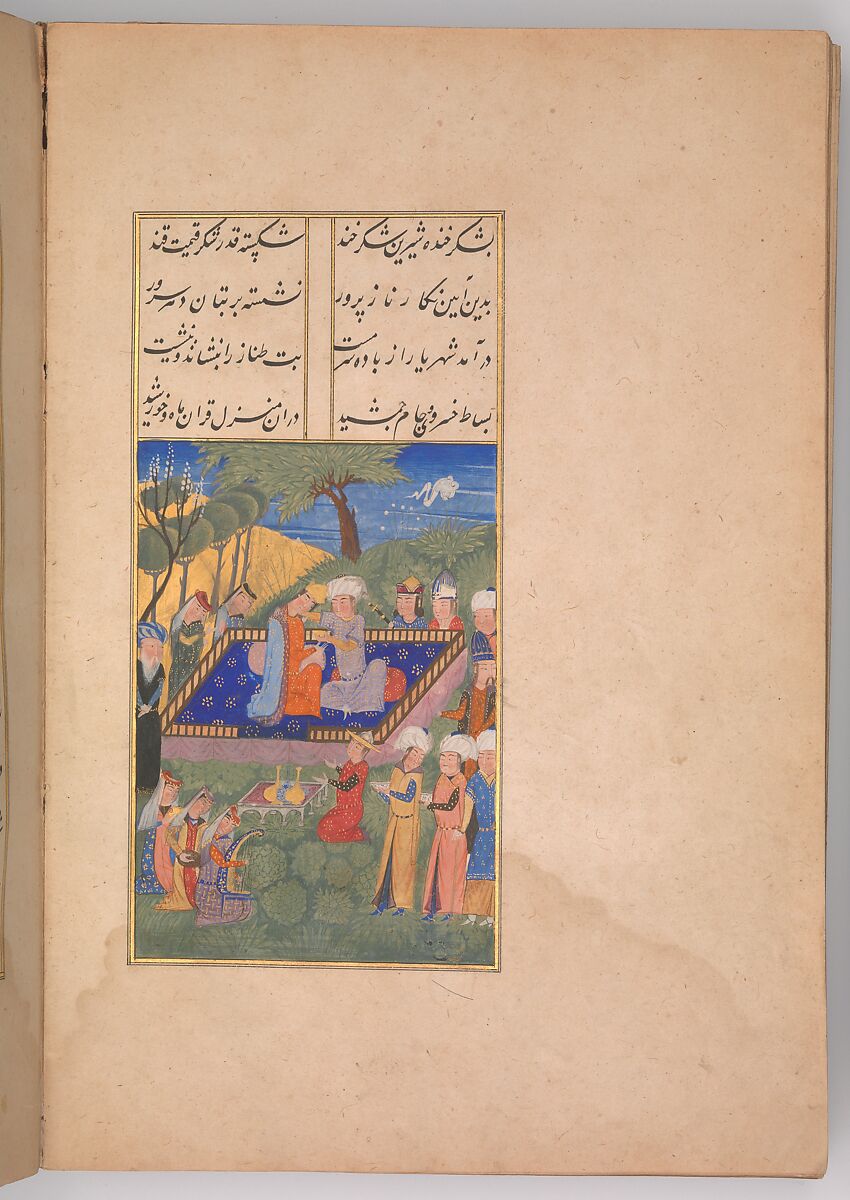 بشکر خنده شیرین شکر خند شکسته قدر شکر قیمت قند
بدین آیین نکار ناز پرور نشسته بر بتان دهر سرور
در آمد شهریار از باده سرمست بت طناز را بنشاند و بنشست
بساط خسروی جام جمشید دران منزل قران ماه و خورشید